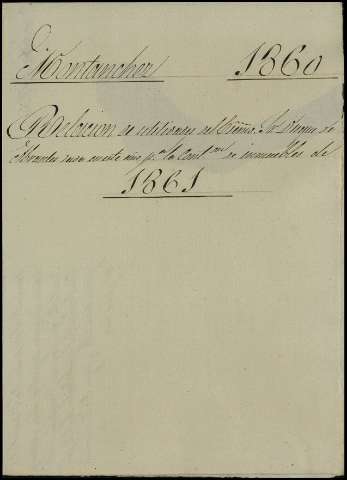 Montanchez 1860
Relacion de utilidades del Exmo. Sr. Duque de
Abrantes para este año pa. la Conton. de inmuebles de
1861